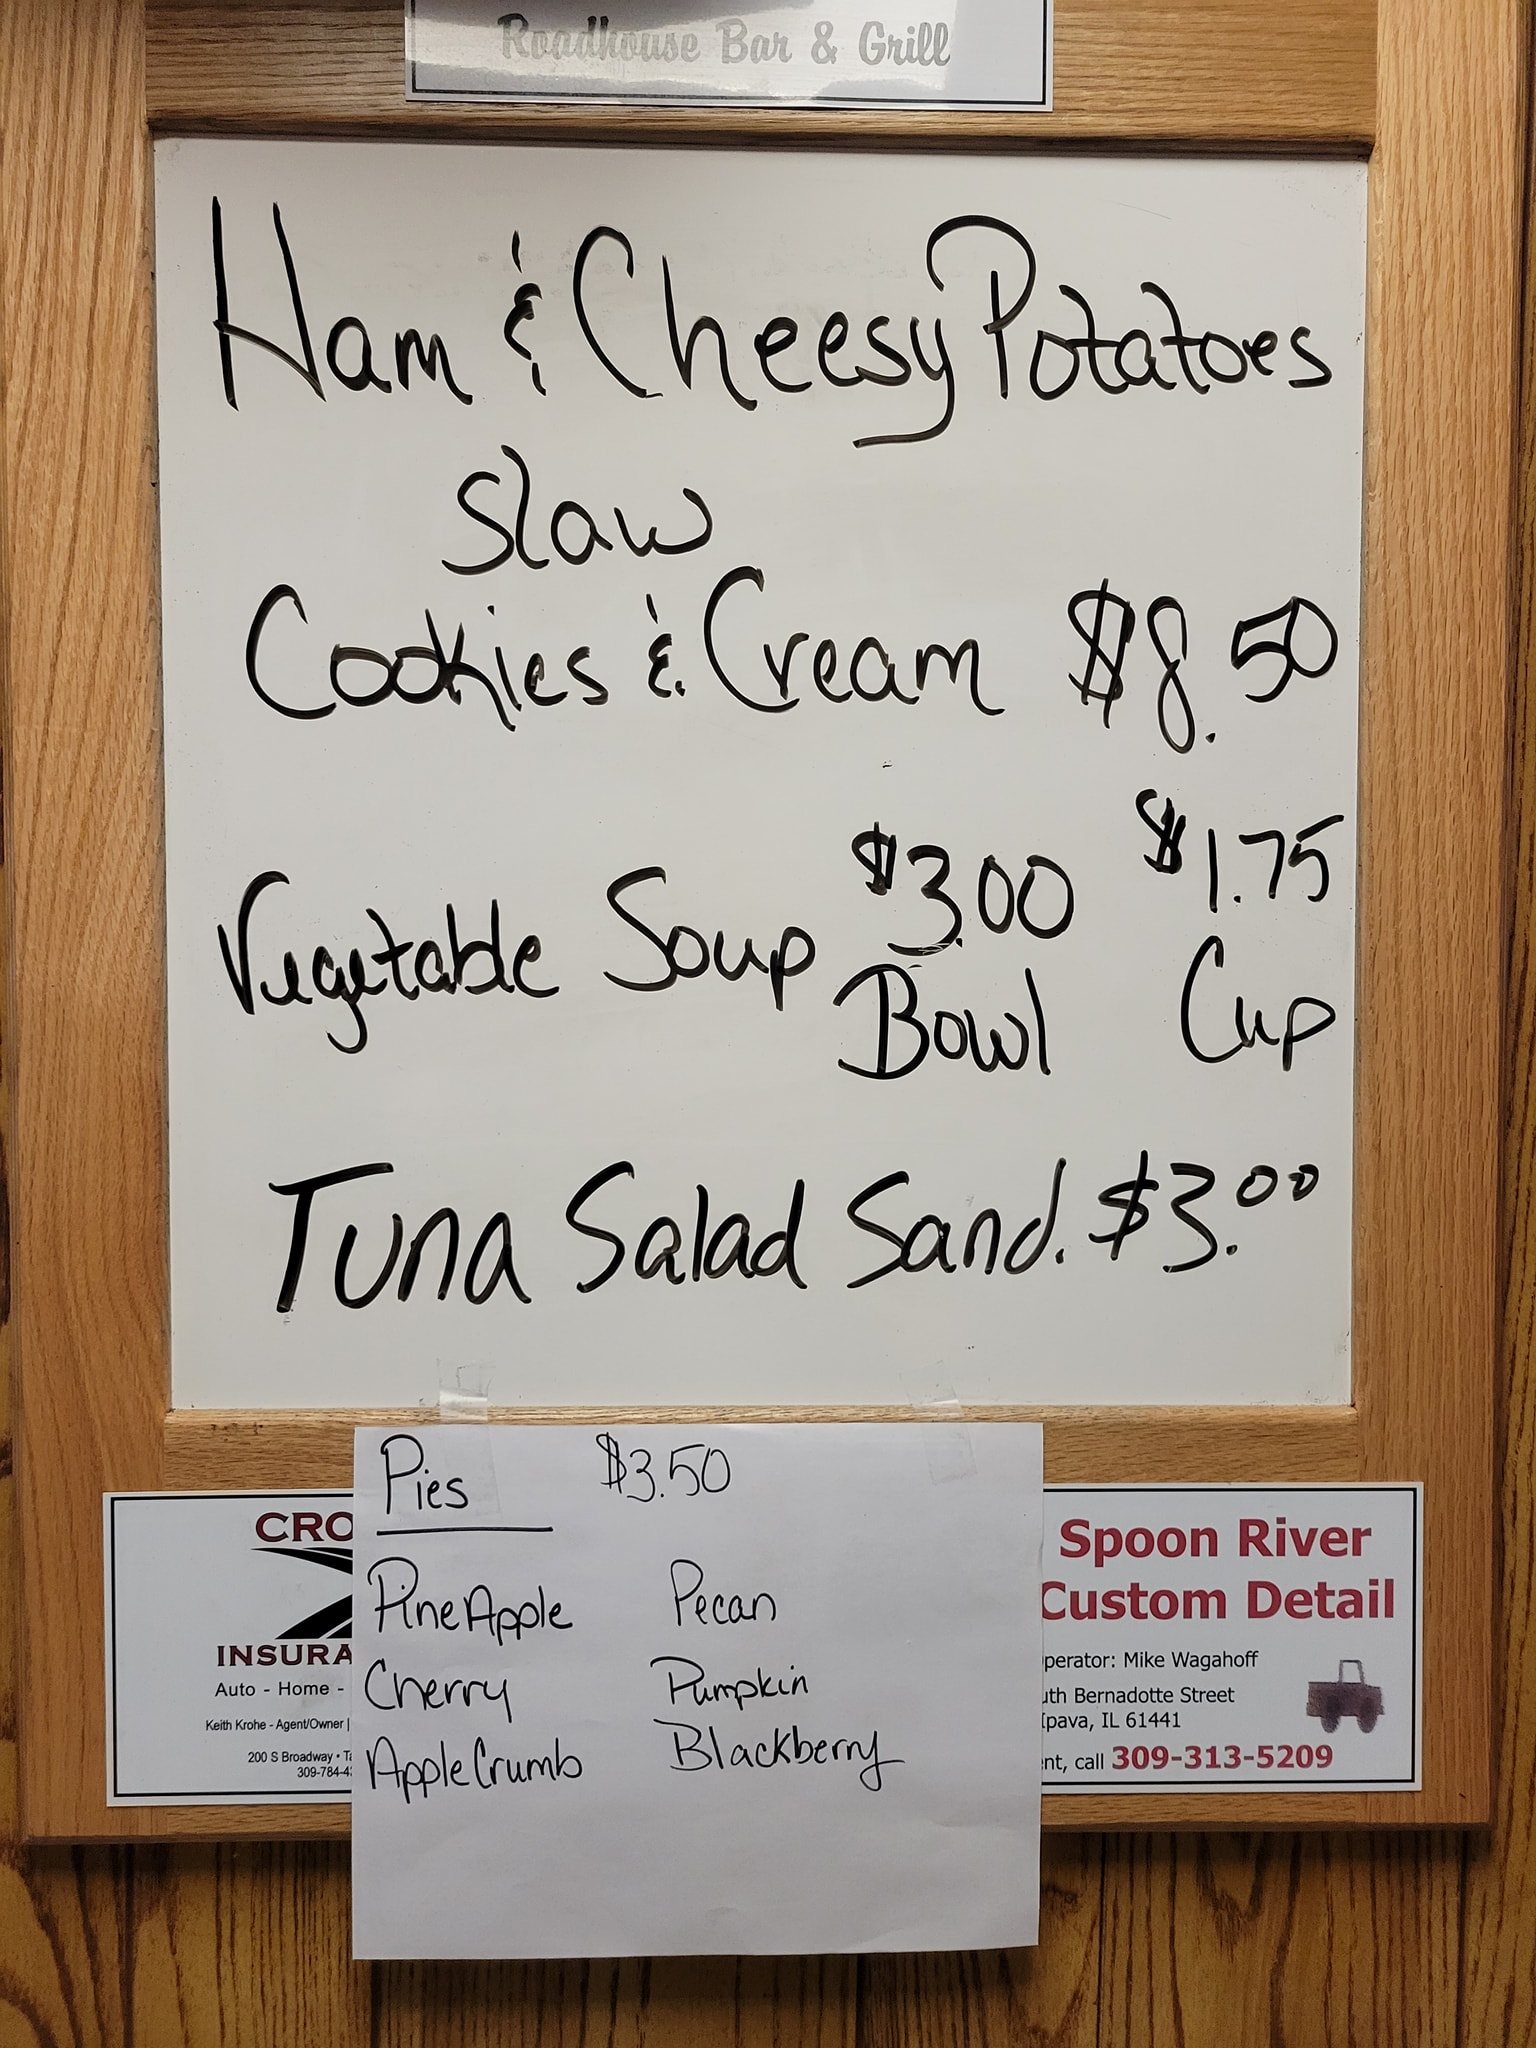 Roadhouse Bar & Grill
Ham & Cheesy Potatoes
Slaw
Cookies & Cream $8.50
Vegetable Soup $3.00 Bowl $1.75 Cup
Tuna Salad Sand. $3.00
Pies $3.50
PineApple Pecan
Cherry Pumpkin
AppleCrumb Blackberry
CRO
INSURA
Auto - Home -
Keith Krohe - Agent/Owner |
200 S Broadway • Ta
309-784-4
Spoon River
Custom Detail
perator: Mike Wagahoff
uth Bernadotte Street
Ipava, IL 61441
nt, call 309-313-5209